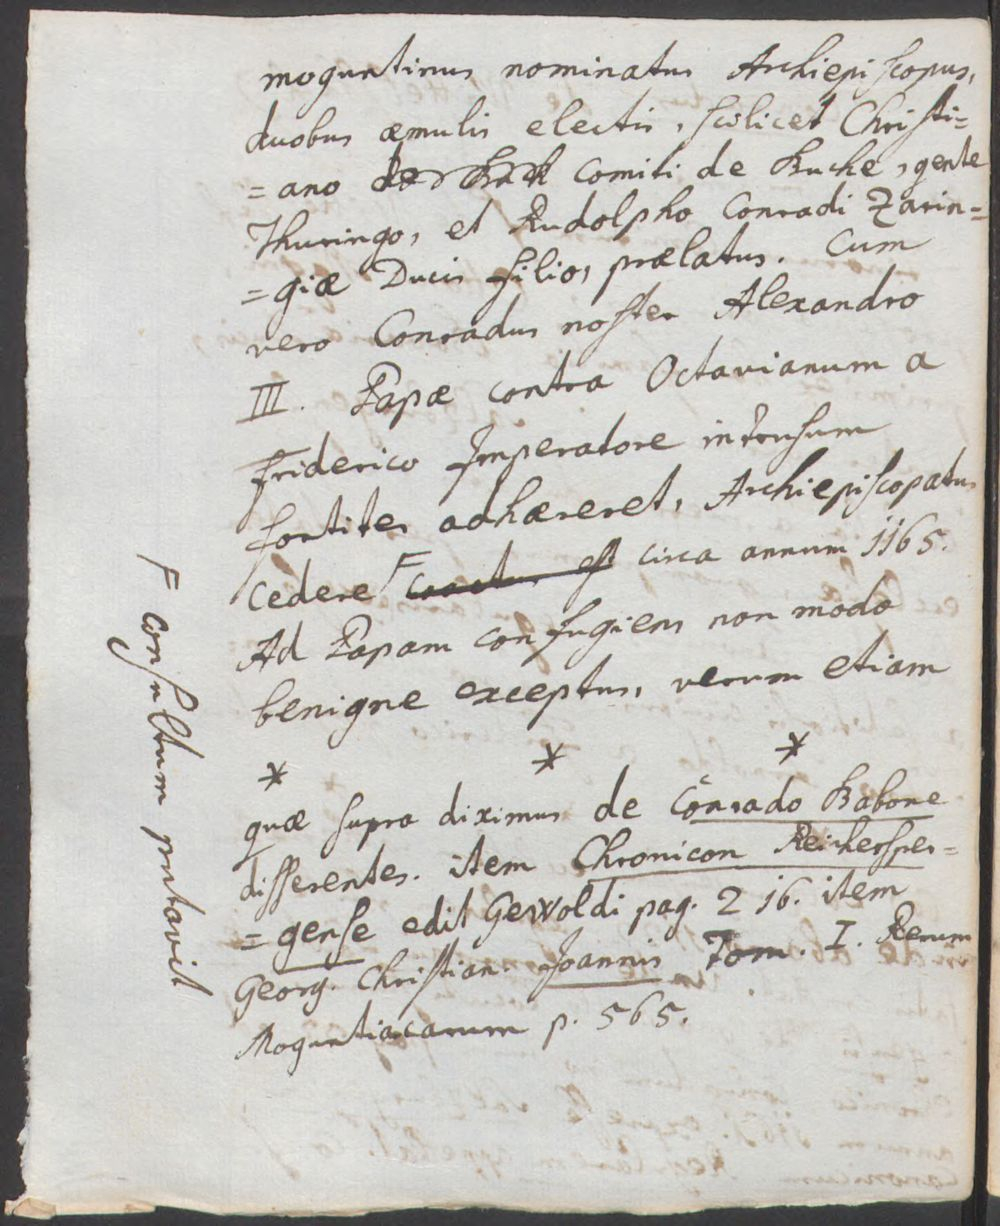 moguntinus nominatus Archiepiscopus,
duobus æmulis electis, scilicet Christi=
=ano comiti de Buche, gente
Thuringo, et Rudolpho Conradi Zarin=
=giæ Ducis filio, prælatus. Cum
vero Conradus noster Alexandro
III. Papæ contra Octavianum a
Friderico Imperatore intrusum
fortiter adhæreret, Archiepiscopatu
cedere F coactus est circa annum 1165.
Ad Papam confugiens non modo
benigne exceptus, verum etiam
* * *
quæ supra diximus de Conrado Babone
differentes. item Chronicon Reichersper=
=gense edit Gewoldi pag. 216. item
Georg. Christian. Joannis Tom. I. Rerum
Moguntiacarum p. 565.
F consultum putavit